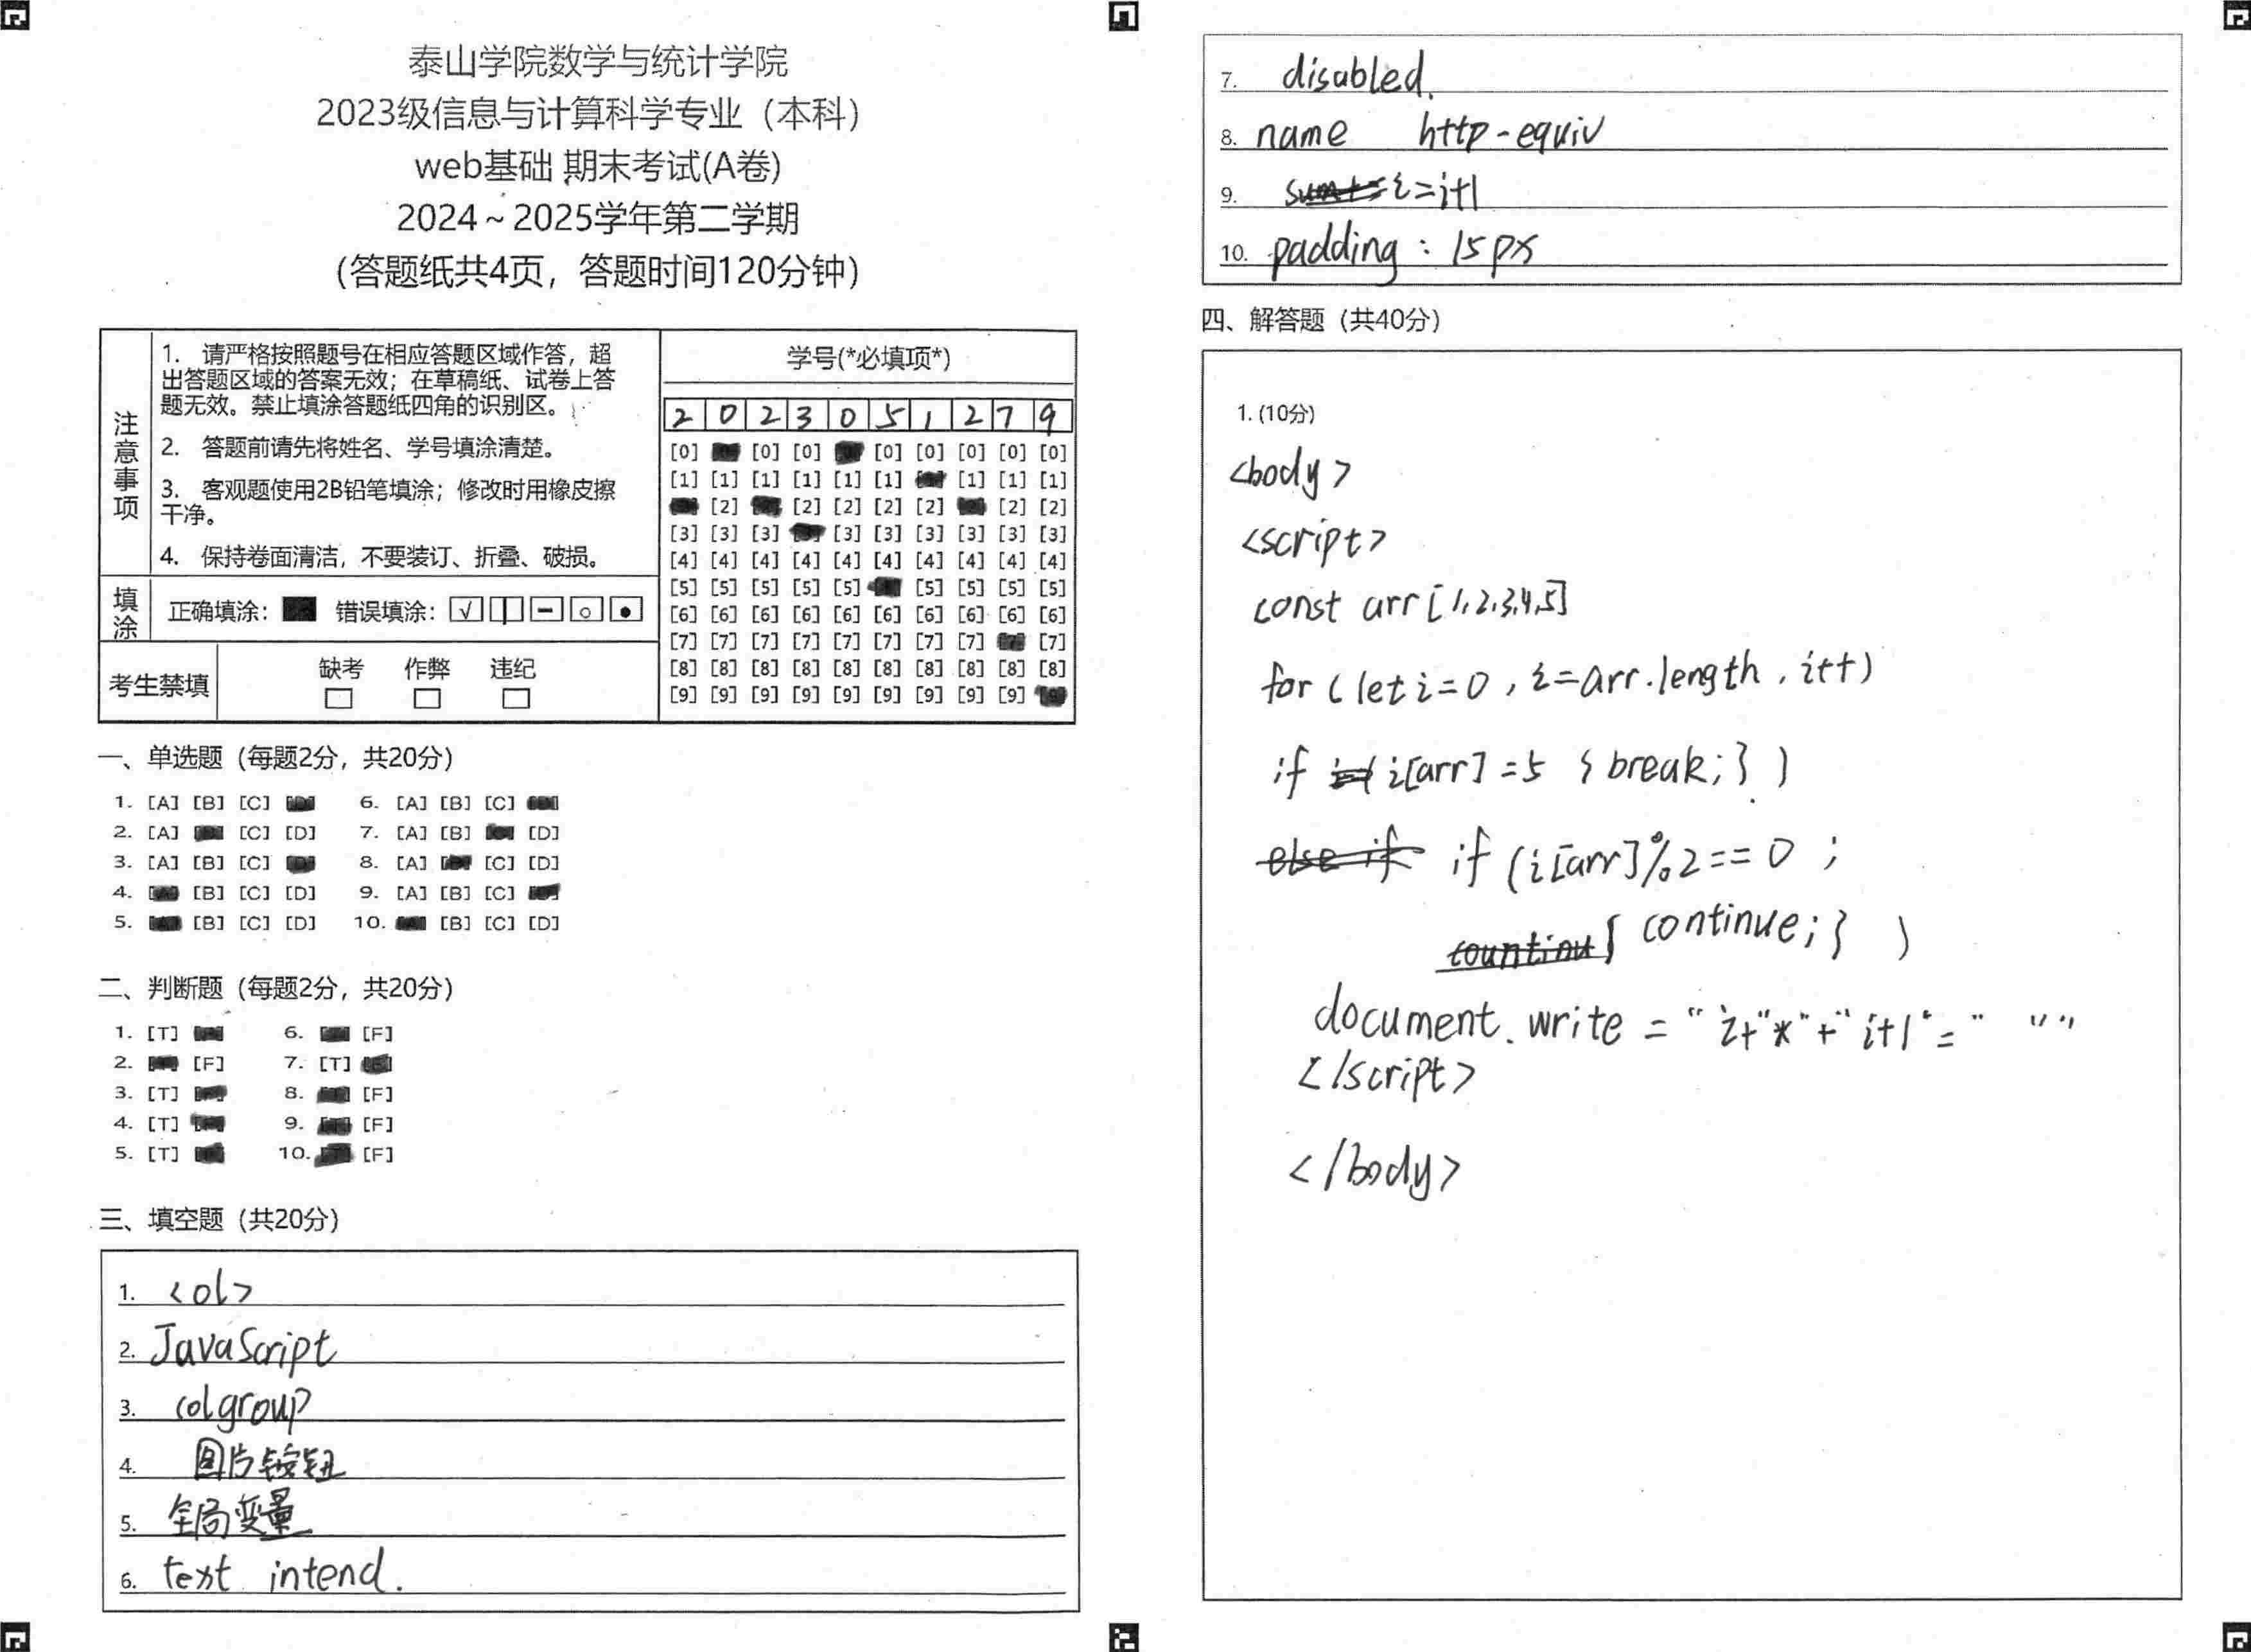 泰山学院数学与统计学院
2023级信息与计算科学专业（本科）
web基础 期末考试(A卷)
2024～2025学年第二学期
(答题纸共4页，答题时间120分钟)
注意事项
1. 请严格按照题号在相应答题区域作答，超
出答题区域的答案无效；在草稿纸、试卷上答
题无效。禁止填涂答题纸四角的识别区。
2. 答题前请先将姓名、学号填涂清楚。
3. 客观题使用2B铅笔填涂；修改时用橡皮擦
干净。
4. 保持卷面清洁，不要装订、折叠、破损。
填涂 正确填涂： 错误填涂：
考生禁填 缺考 作弊 违纪
学号(*必填项*)
2 0 2 3 0 5 1 2 7 9
[0] [0] [0] [0] [0] [0] [0] [0]
[1] [1] [1] [1] [1] [1] [1] [1] [1]
[2] [2] [2] [2] [2] [2] [2]
[3] [3] [3] [3] [3] [3] [3] [3] [3]
[4] [4] [4] [4] [4] [4] [4] [4] [4] [4]
[5] [5] [5] [5] [5] [5] [5] [5] [5]
[6] [6] [6] [6] [6] [6] [6] [6] [6] [6]
[7] [7] [7] [7] [7] [7] [7] [7] [7]
[8] [8] [8] [8] [8] [8] [8] [8] [8] [8]
[9] [9] [9] [9] [9] [9] [9] [9] [9]
一、单选题（每题2分，共20分）
1. [A] [B] [C] 6. [A] [B] [C]
2. [A] [C] [D] 7. [A] [B] [D]
3. [A] [B] [C] 8. [A] [C] [D]
4. [B] [C] [D] 9. [A] [B] [C]
5. [B] [C] [D] 10. [B] [C] [D]
二、判断题（每题2分，共20分）
1. [T] 6. [F]
2. [F] 7. [T]
3. [T] 8. [F]
4. [T] 9. [F]
5. [T] 10. [F]
三、填空题（共20分）
1. <ol>
2. JavaScript
3. colgroup
4. 图片按钮
5. 全局变量
6. text intend.
7. disabled.
8. name http-equiv
9. i=i+1
10. padding：15px
四、解答题（共40分）
1. (10分)
<body>
<script>
const arr[1,2,3,4,5]
for (let i=0, i=arr.length, i++)
if i[arr]=5 {break;} )
if (i[arr]%2==0 ;
{ continue;} )
document.write = " i+"*"+" i+1"=" ""
</script>
</body>